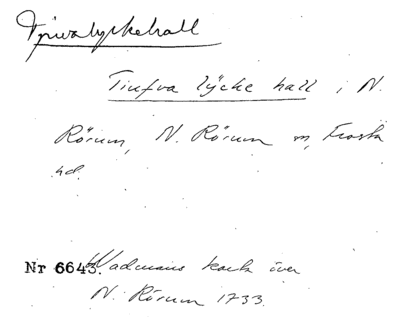 Tjuvalyckehall
Tiufva lÿcke hall i N.
Rörum, N. Rörum sn, Frosta
hd.
Nr 6643. Wadmans karta över
N. Rörum 1733.